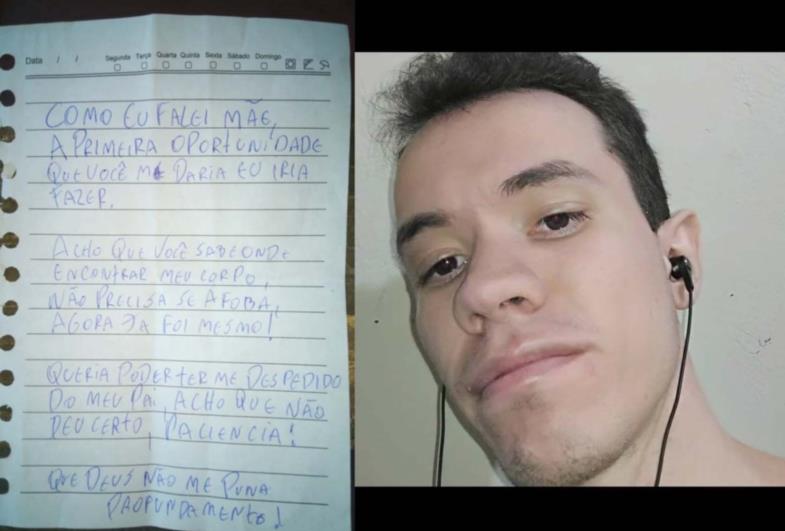 Data / /
Segunda Terça Quarta Quinta Sexta Sábado Domingo
COMO EU FALEI MÃE,
A PRIMEIRA OPORTUNIDADE
QUE VOCÊ ME DARIA EU IRIA
FAZER.
ACHO QUE VOCÊ SABE ONDE
ENCONTRAR MEU CORPO,
NÃO PRECISA SE AFOBA,
AGORA JA FOI MESMO!
QUERIA PODER TER ME DESPEDIDO
DO MEU PAI, ACHO QUE NÃO
DEU CERTO, PACIENCIA!
QUE DEUS NÃO ME PUNA
PROFUNDAMENTE!